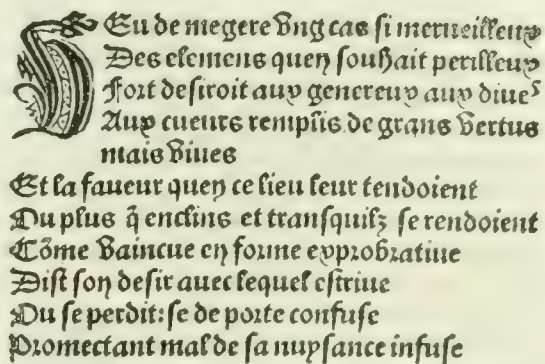 VEu de megere vng cas si merueilleux
Des elemens quen souhait perilleux
Fort desiroit aux genereux aux diues
Aux cueurs remplis de grans vertus
mais viues
Et la faueur quen ce lieu leur tendoient
Ou plus q̃ enclins et transquilz se rendoient
Cõme vaincue en forme exprobratiue
Dist son desir auec lequel estriue
Ou se perdit: se de porte confuse
Promectant mal de sa nuysance infuse